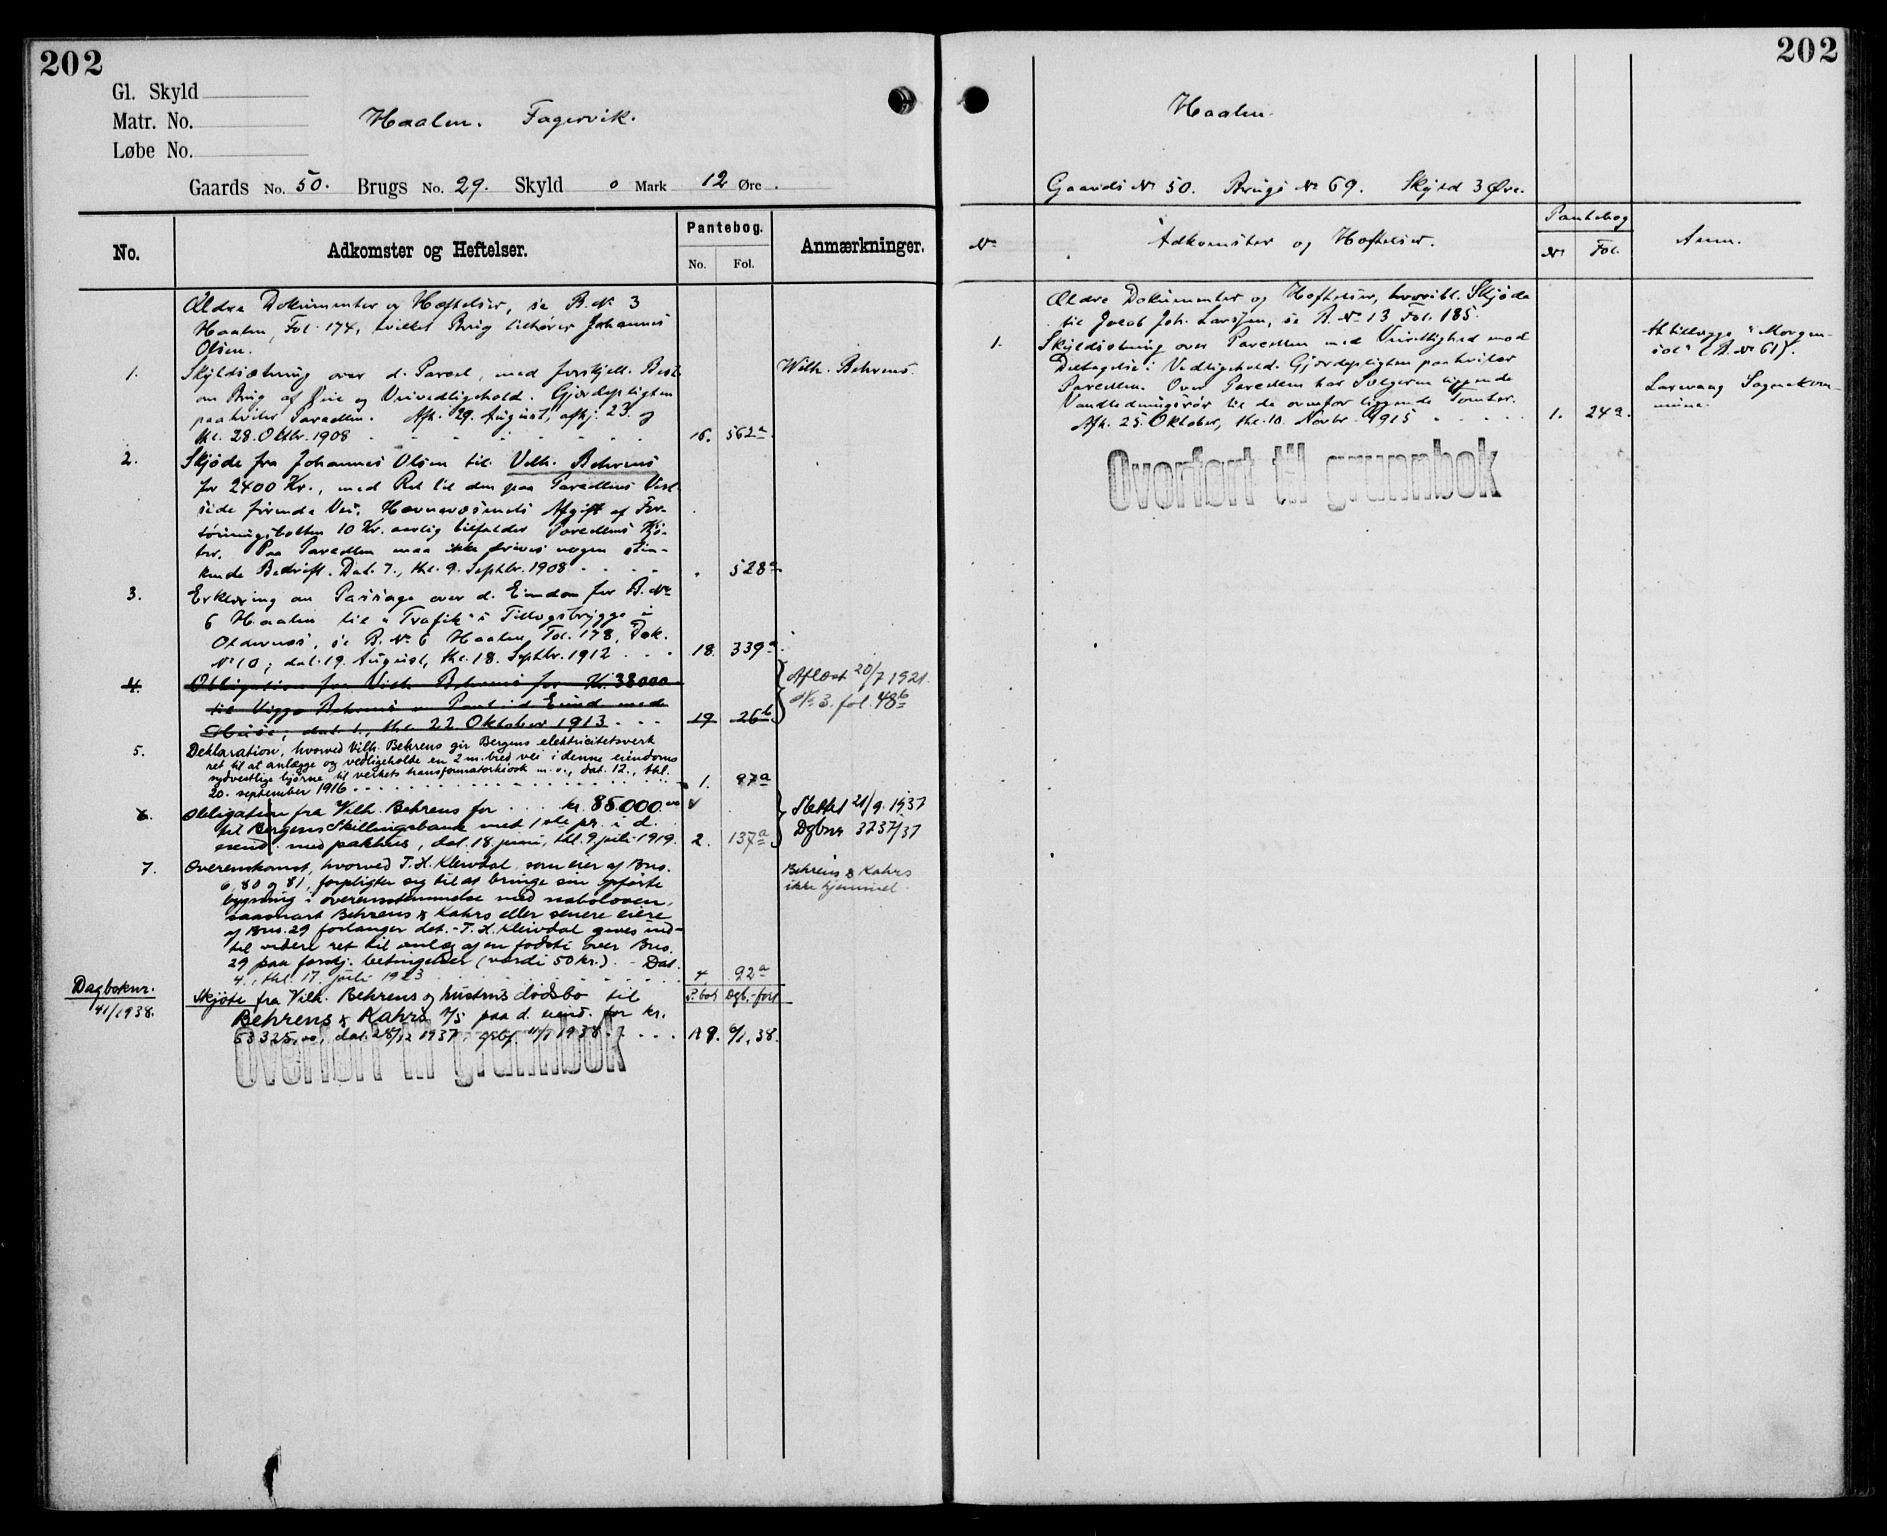 202
Gl. Skyld
Matr. No.
Løbe No.
Haalen. Fagervik.
Gaards No. 50. Brugs No. 29. Skyld 0 Mark 12 Øre.
No.
Adkomster og Heftelser.
Pantebog.
No. Fol.
Anmærkninger.
Ældre Dokumenter og Hæftelser, se B. No 3
Haalen, Fol. 174, hvilket Brug tilhører Johannes
Olsen.
1. Skyldsætning over d. Parcel, med forskjell. Best.
Wilh. Behrens.
om Brug af Veie og Veivedligehold. Gjærdepligten
paahviler Parcellen. Afh. 29. August, afhj. 23. og
thl. 28. Oktbr. 1908 16. 562a
2. Skjøde fra Johannes Olsen til Vilh. Behrens
for 2400 Kr., med Ret til den paa Parcellens Vest-
side førende Vei. Havnevæsenets Afgift af For-
tøiningsbolten 10 Kr. aarlig tilfalder Parcellens Kjø-
ber. Paa Parcellen maa ikke drives nogen stin-
kende Bedrift. Dat. 7., thl. 9. Septbr. 1908 528a
3. Erklæring om Passage over d. Eiendom for B. No
6 Haalen til "Trafik" i Tillægsbrygge i
se B. No 6 Haalen, Fol. 178, Dok.
No 10; dat. 19. August, thl. 18. Septbr. 1912 18. 339a
4. Obligation fra Vilh. Behrens for Kr. 38000
til Viggo Behrens m Pant i d Eiend. med
Huse; dat. 1., thl. 22 Oktober 1913 19 26b
Aflæst 20/7 1921.
No 3. fol. 48b
5. Deklaration, hvorved Vilh. Behrens gir Bergens elektricitetsverk
ret til at anlægge og vedligeholde en 2 m. bred vei i denne eiendoms
sydvestlige hjørne til verkets transformatorkiosk m. v., dat. 12., thl.
20. september 1916 1. 87a
6. Obligation fra Vilh. Behrens for kr. 85.000 00
til Bergens Skillingsbank med 1ste pr. i d.
eiend. med pakhus, dat. 18 juni, thl. 9. juli 1919. 2. 137a
Slettet 21/9. 1937
Dgbnr 3737/37
7. Overenskomst, hvorved T. H. Kleivdal som eier af Bno.
6, 80 og 81, forpligter sig til at bringe sin opførte
bygning i overensstemmelse med naboloven,
saasnart Behrens & Kahrs eller senere eiere
af Bno. 29 forlanger det. - T. H. Kleivdal gives ind-
til videre ret til anlæg af en fodsti over Bno.
29 paa forskj. betingelser (værdi 50 kr.). - Dat.
4., thl. 17. juli 1923 4. 92a
Behrens & Kahrs
ikke hjemmel.
Dagboknr.
41/1938.
Skjøte fra Vilh. Behrens og hustrus dødsbo til
P.bok Dgb.-ført
Behrens & Kahrs A/S paa d. eiend. for kr.
53 325,00, dat. 28/12 1937, 1938 A 9. 38.
Overført til grunnbok
202
Haalen.
Gaards No 50. Brugs No 69. Skyld 3 Øre.
No
Adkomster og Hæftelser.
Pantebog
No Fol.
Anm.
Ældre Dokumenter og Hæftelser, hvoribl. Skjøde
til Jacob Joh. Larssen, se B. No 13 Fol. 185.
1. Skyldsætning over Parcellen med Veirettighed mod
Deltagelse i Vedligehold. Gjærdepligten paahviler
Parcellen. Over Parcellen har Sælgeren liggende
Vandledningsrør til de ovenfor liggende Tomter.
Afh. 25. Oktober, thl. 10. Novbr. 1915 1. 24a.
At tillægge "Morgen-
sol" (B. No 61).
Laxevaag Sognekom-
mune.
Overført til grunnbok